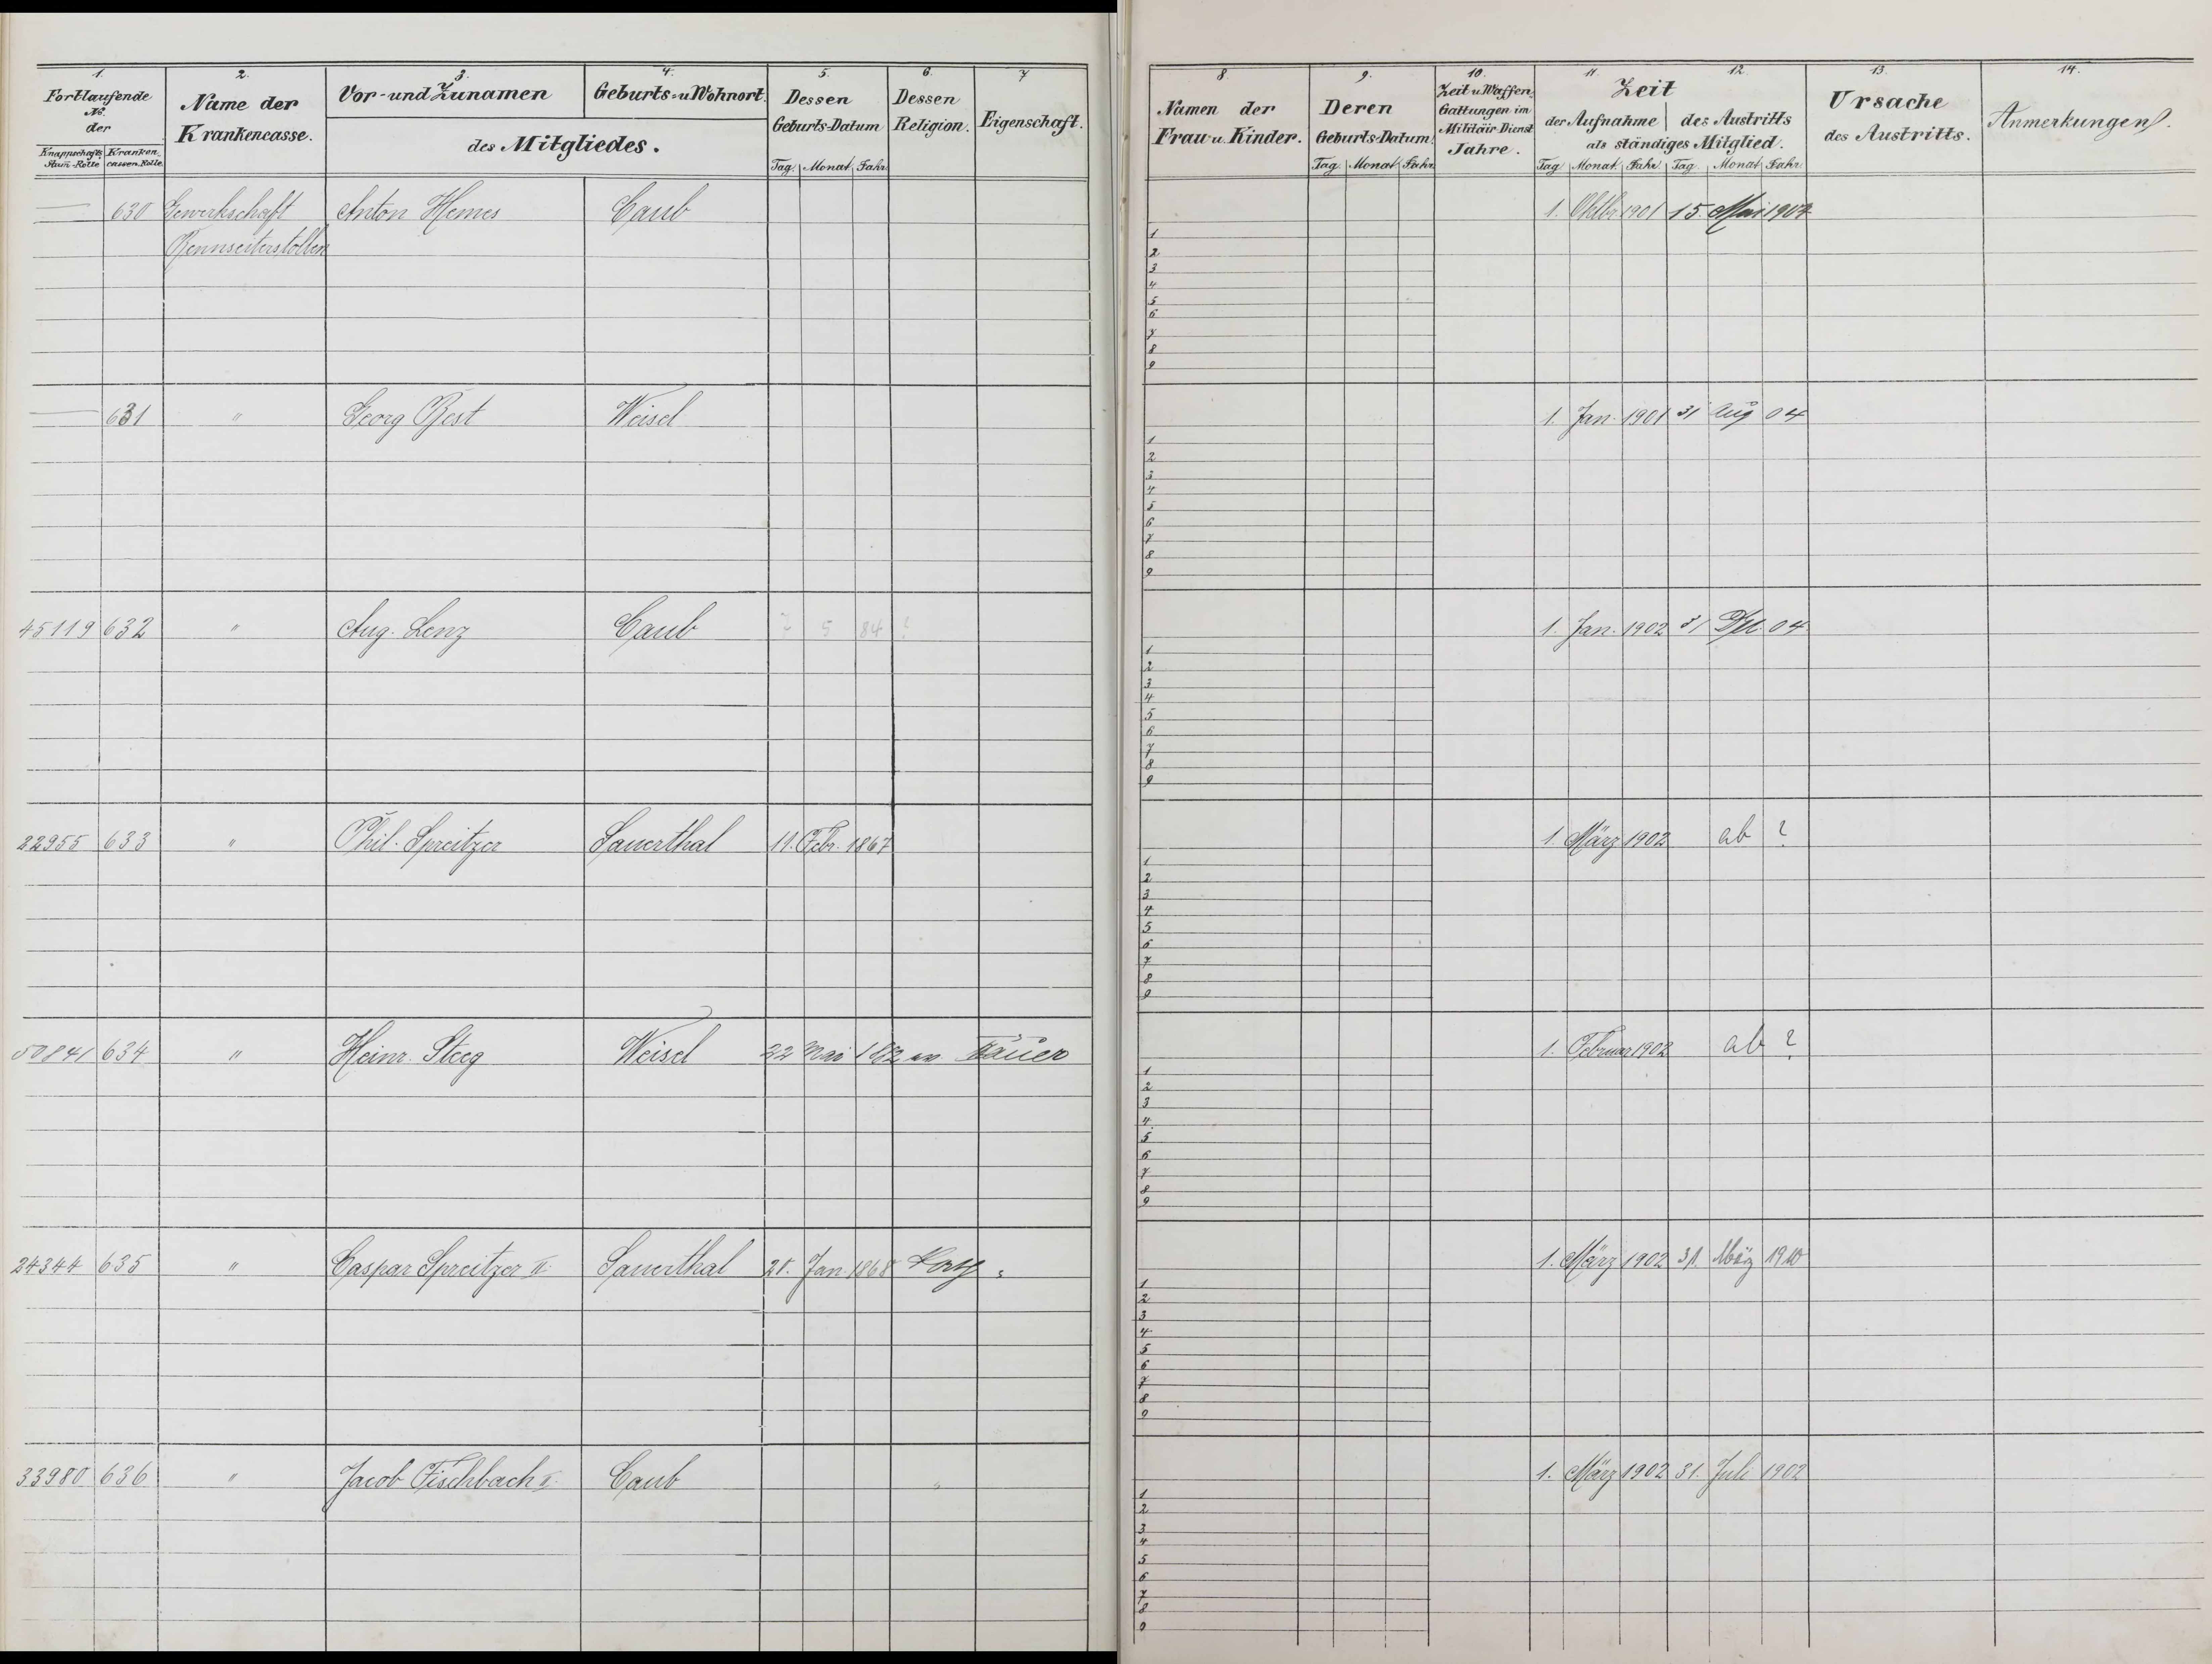 1. 2. 3. 4. 5. 6. 7
Fortlaufende No. der
Knappschafts Stam-Rolle Kranken cassen-Rolle.
Name der Krankencasse.
Vor- und Zunamen
Geburts- u Wohnort.
des Mitgliedes.
Dessen Geburts-Datum
Tag. Monat Jahr.
Dessen Religion.
Eigenschaft.
630 Gewerkschaft Anton Hemes Caub
Rennseiterstollen
631 " Georg Best Weisel
45119 632 " Aug. Lenz Caub 7 5 84 ?
22955 633 " Phil. Spreitzer Sauerthal 11. Febr. 1867
50841 634 " Heinr. Steeg Weisel 22 Mai 1882 ev Häuer
24344 635 " Caspar Spreitzer II. Sauerthal Jan. 1868
33980 636 " Jacob Fischbach II. Caub "
8. 9. 10. 11. 12. 13. 14.
Namen der Frau u. Kinder.
Deren Geburts-Datum.
Tag. Monat Jahr
Zeit u Waffen-Gattungen im Militäir-Dienst Jahre.
Zeit
der Aufnahme des Austritts
als ständiges Mitglied.
Tag Monat. Jahr. Tag. Monat Jahr.
Ursache des Austritts.
Anmerkungen.
1. Oktbr 1901 15. Mai 1904
1
2
3
4
5
6
7
8
9
1. Jan. 1901 31 Aug 04
1
2
3
4
5
6
7
8
9
1. Jan. 1902 31 Dez. 04
1
2
3
4
5
6
7
8
9
1. März 1902 ab ?
1
2
3
4
5
6
7
8
9
1. Februar 1902 ab ?
1
2
3
4
5
6
7
8
9
1. März 1902 31. März 1910
1
2
3
4
5
6
7
8
9
1. März 1902 31. Juli 1902
1
2
3
4
5
6
7
8
9